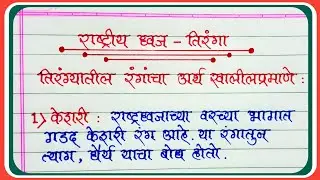 राष्ट्रीय ध्वज - तिरंगा
तिरंग्यातील रंगांचा अर्थ खालीलप्रमाणे :
1) केशरी : राष्ट्रध्वजाच्या वरच्या भागात
गडद केशरी रंग आहे. या रंगातुन
त्याग, धैर्य याचा बोध होतो.